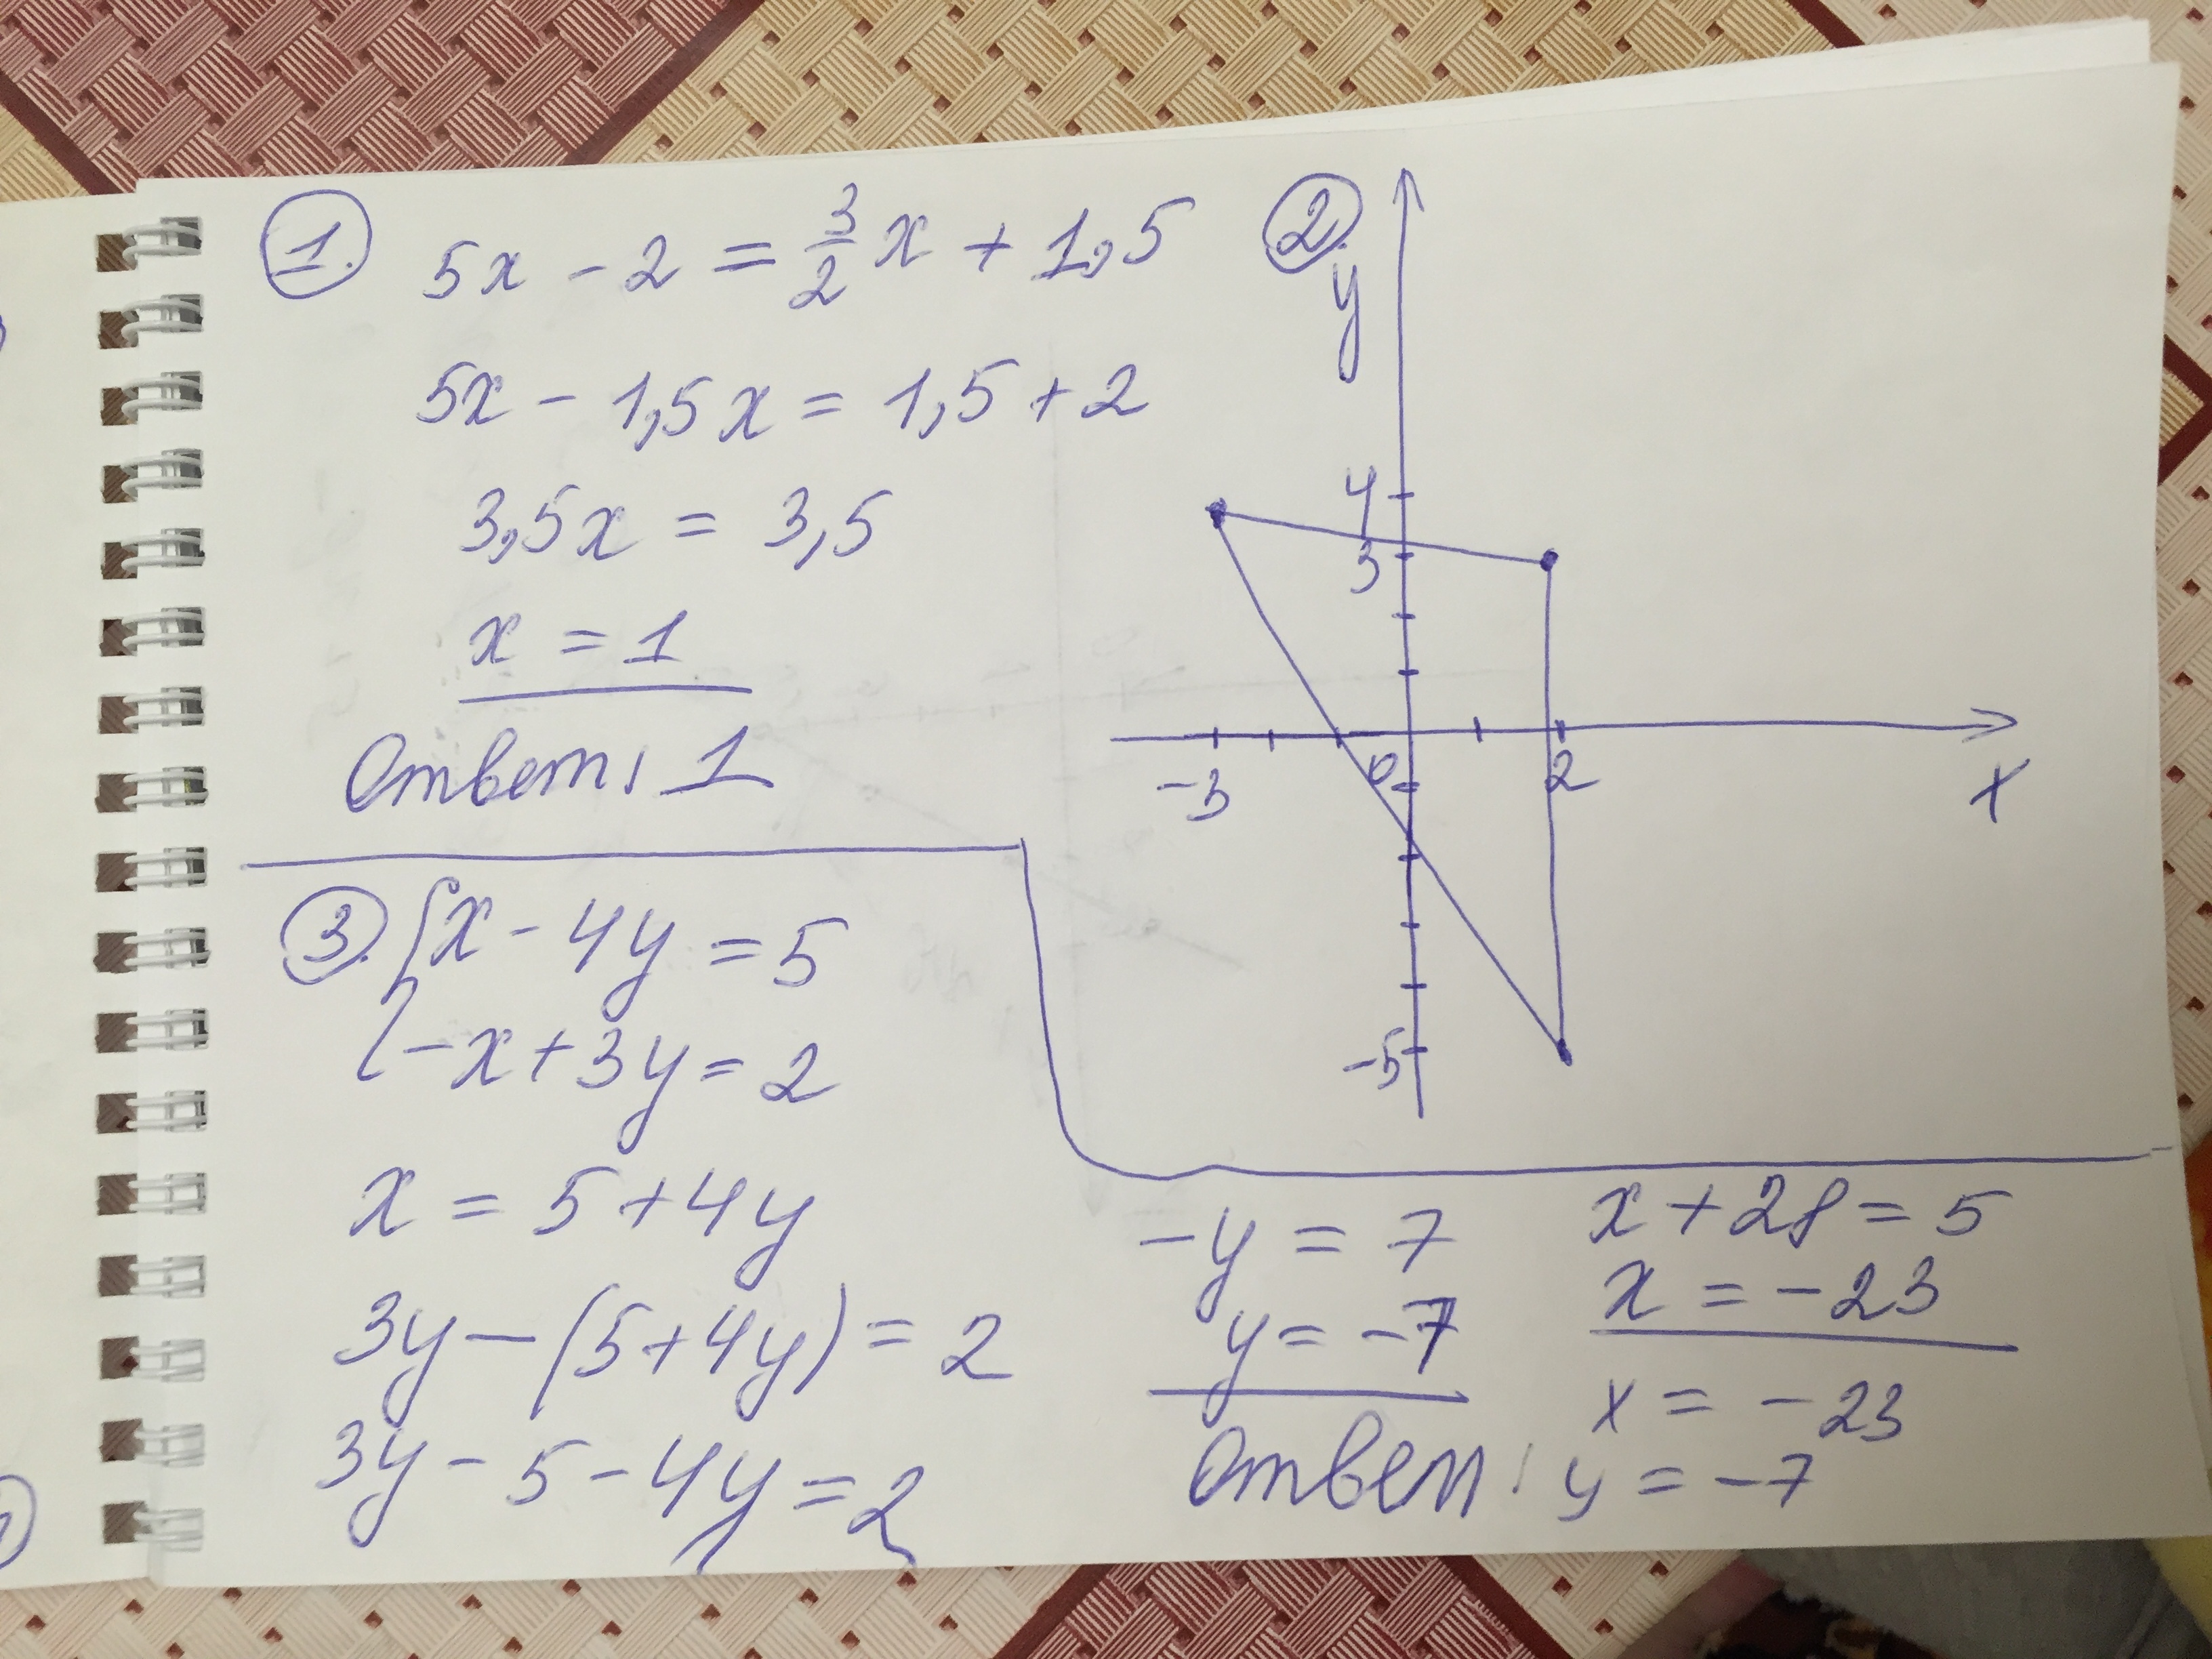 1.
5x - 2 = 3/2 x + 1,5
5x - 1,5x = 1,5 + 2
3,5x = 3,5
x = 1
Ответ: 1
2.
y
4
3
-3
0
2
x
-5
3.
{ x - 4y = 5
{ -x + 3y = 2
x = 5 + 4y
3y - (5 + 4y) = 2
3y - 5 - 4y = 2
-y = 7
y = -7
x + 28 = 5
x = -23
Ответ:
x = -23
y = -7